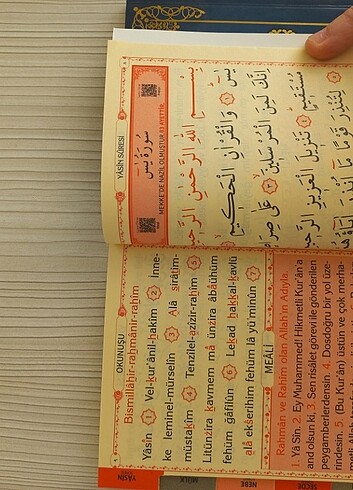 YÂSÎN SÛRESİ
سُورَةُ يٰسٓ
MEKKE'DE NAZİL OLMUŞTUR. 83 AYETTİR.
بِسْمِ اللّٰهِ الرَّحْمٰنِ الرَّحِيمِ
يٰسٓ ﴿١﴾ وَالْقُرْاٰنِ الْحَكِيمِ ﴿٢﴾
اِنَّكَ لَمِنَ الْمُرْسَلِينَ ﴿٣﴾ عَلٰى صِرَاطٍ
مُسْتَقِيمٍ ﴿٤﴾ تَنْزِيلَ الْعَزِيزِ الرَّحِيمِ
لِتُنْذِرَ قَوْمًا مَا اُنْذِرَ اٰبَاؤُهُمْ
OKUNUŞU
Bismillâhir-rahmânir-rahîm
Yâsîn 1 Vel-kur'ânil-hakîm 2 İnne-
ke leminel-mürselîn 3 Alâ sırâtim-
müstakîm 4 Tenzîlel-azîzir-rahîm 5
Litünzira kavmem mâ ünzira âbâühüm
fehüm gâfilûn 6 Lekad hakkal-kavlü
alâ ekserihim fehüm lâ yü'minûn 7
MEÂLİ
Rahmân ve Rahîm olan Allah'ın Adıyla.
1. Yâ Sîn. 2. Ey Muhammed! Hikmetli Kur'ân'a
and olsun ki, 3. Sen risâlet görevi ile gönderilen
peygamberlerdensin. 4. Dosdoğru bir yol üze-
rindesin. 5. (Bu Kur'ân) üstün ve çok merha-
YÂSİN
MÜLK
NEBE
SECDE